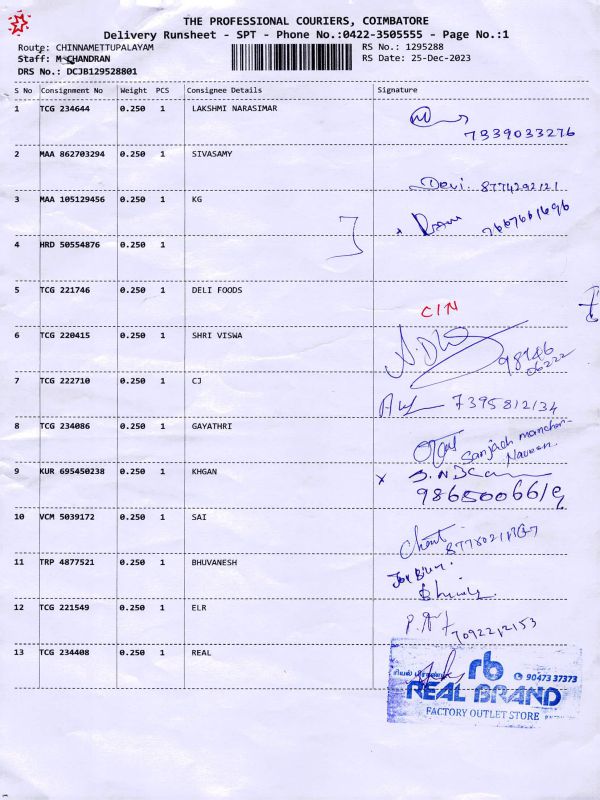 THE PROFESSIONAL COURIERS, COIMBATORE
Delivery Runsheet - SPT - Phone No.:0422-3505555 - Page No.:1
Route: CHINNAMETTUPALAYAM RS No.: 1295288
Staff: M CHANDRAN RS Date: 25-Dec-2023
DRS No.: DCJB129528801
S No Consignment No Weight PCS Consignee Details Signature
1 TCG 234644 0.250 1 LAKSHMI NARASIMAR
7339033276
2 MAA 862703294 0.250 1 SIVASAMY
Devi. 8774292121
3 MAA 105129456 0.250 1 KG
7667661696
4 HRD 50554876 0.250 1
5 TCG 221746 0.250 1 DELI FOODS
CIN
6 TCG 220415 0.250 1 SHRI VISWA
98146
06222
7 TCG 222710 0.250 1 CJ
7395812134
8 TCG 234086 0.250 1 GAYATHRI
Naveen.
9 KUR 695450238 0.250 1 KHGAN
9865006619
10 VCM 5039172 0.250 1 SAI
11 TRP 4877521 0.250 1 BHUVANESH
12 TCG 221549 0.250 1 ELR
7092212153
13 TCG 234408 0.250 1 REAL
rb 90473 37373
REAL BRAND
FACTORY OUTLET STORE